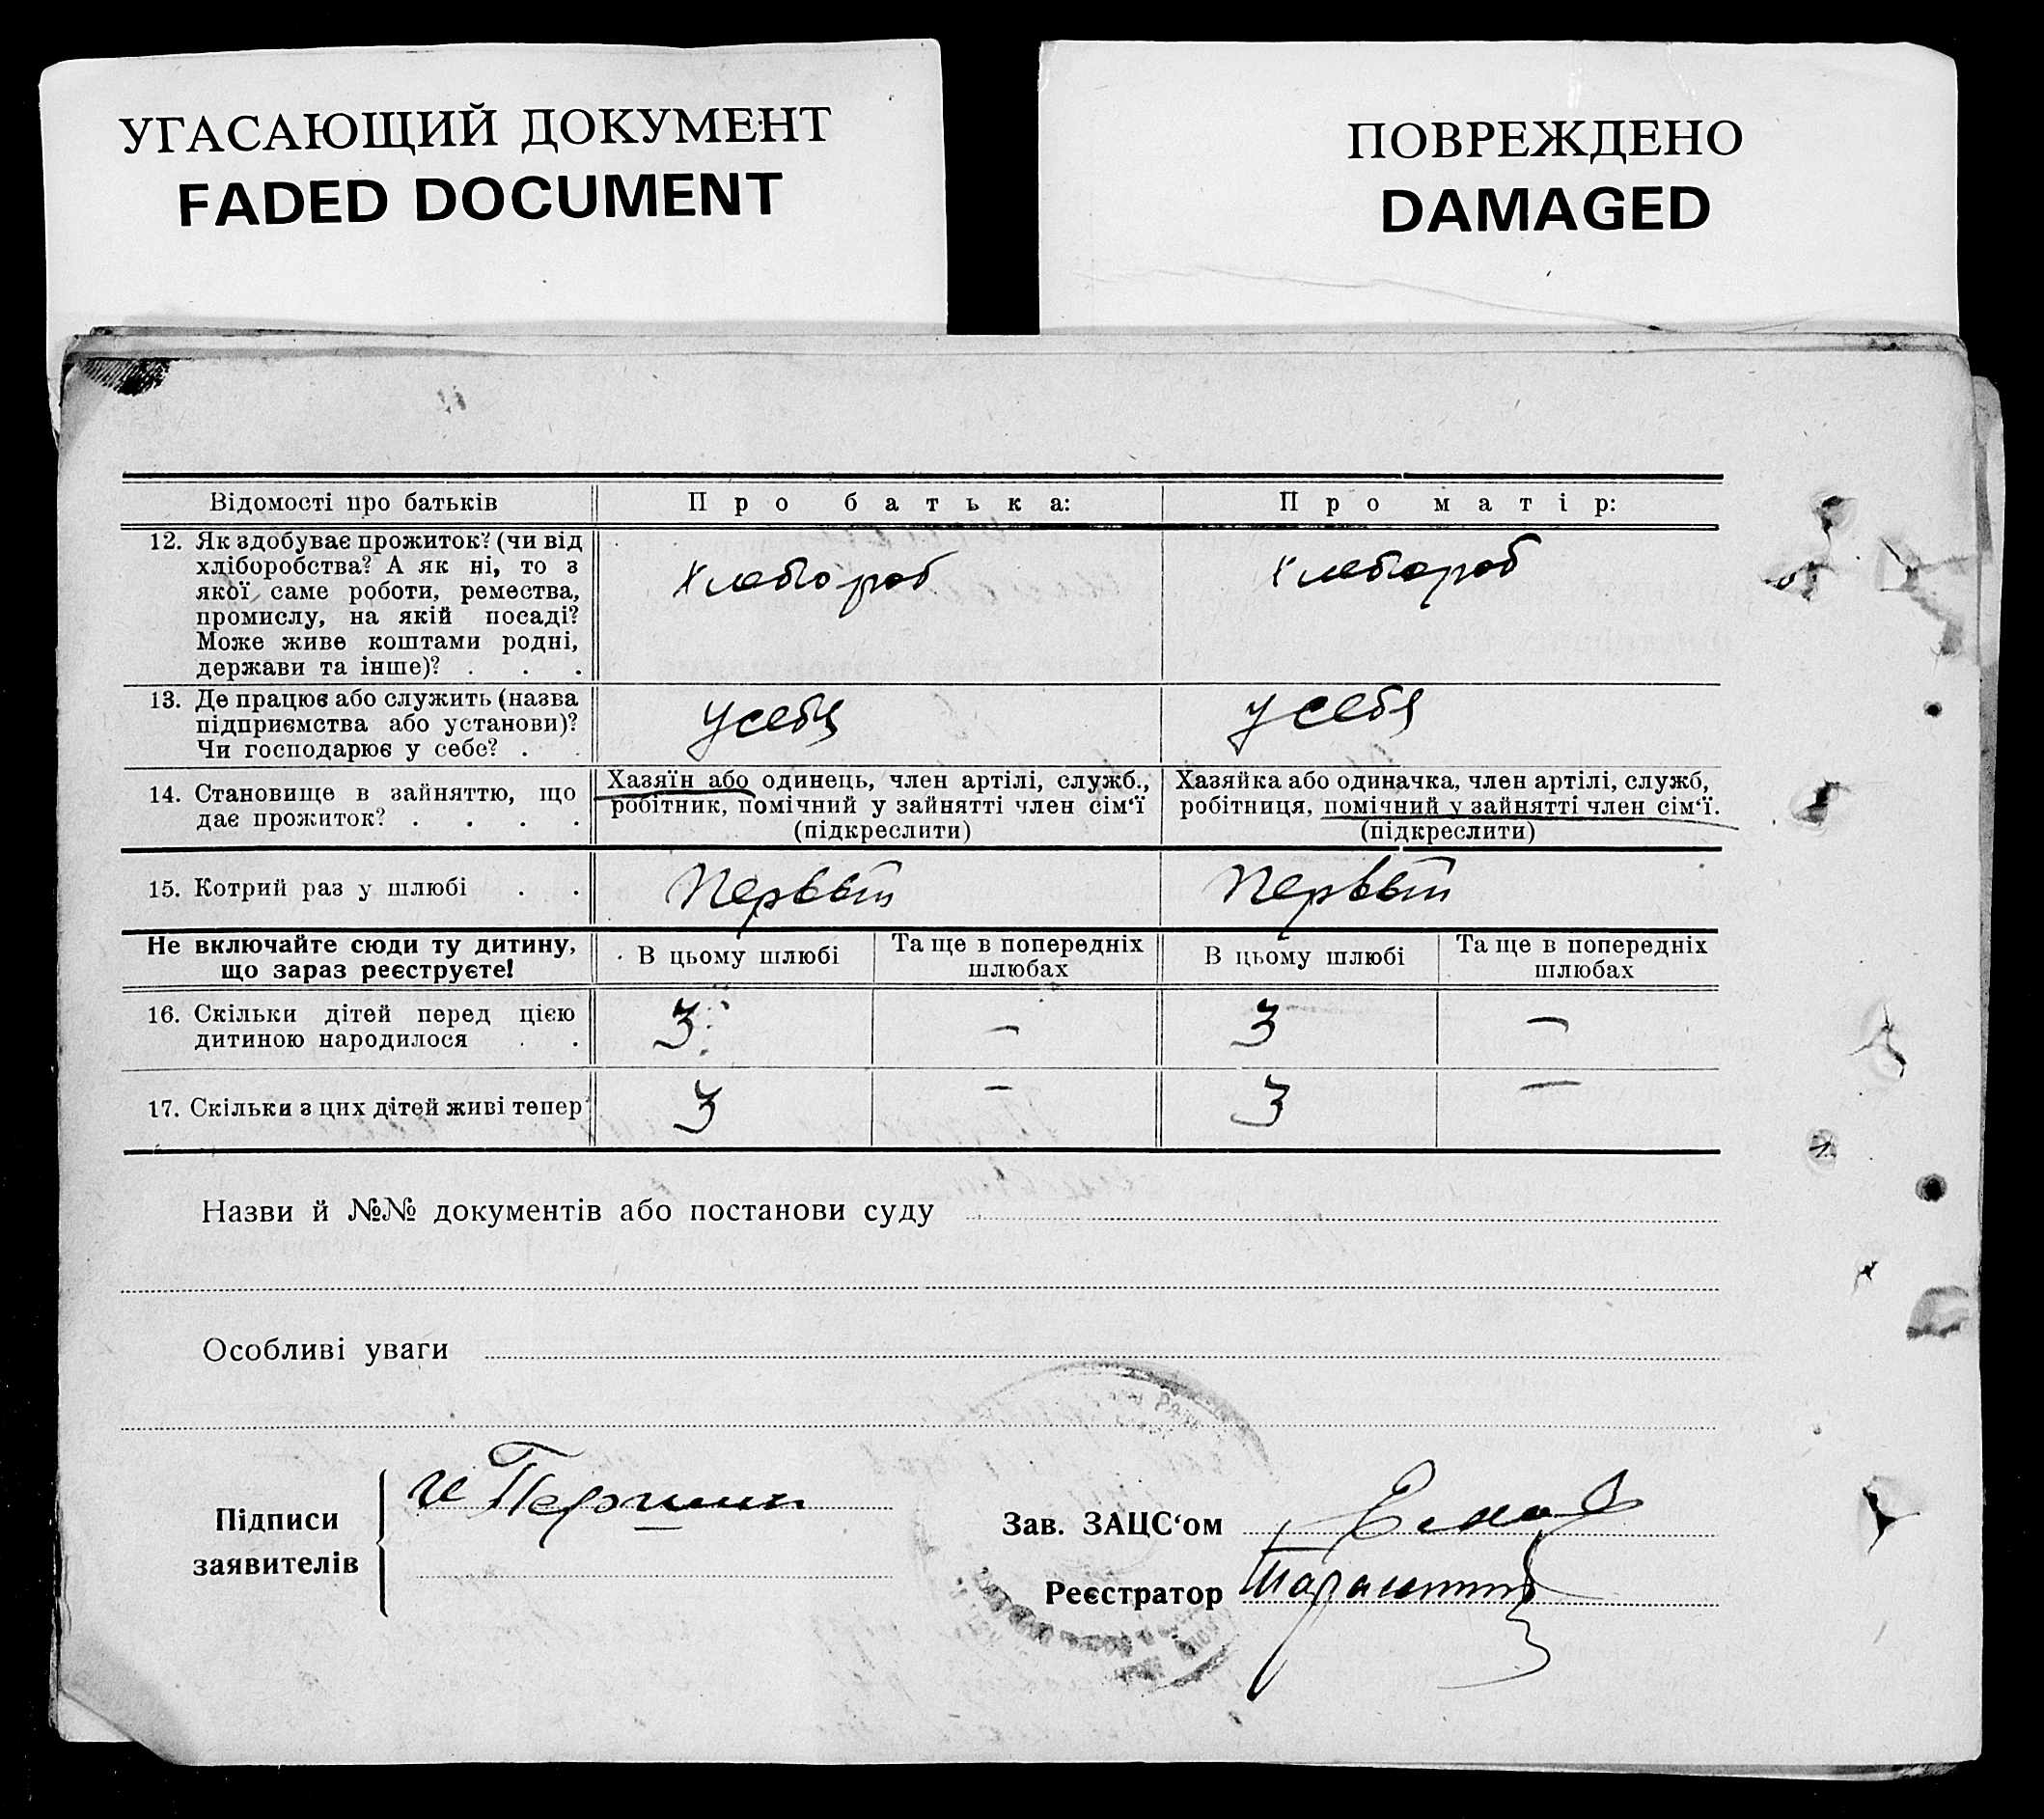 УГАСАЮЩИЙ ДОКУМЕНТ
FADED DOCUMENT
ПОВРЕЖДЕНО
DAMAGED
Відомості про батьків
Про батька:
Про матір:
12. Як здобуває прожиток? (чи від
хліборобства? А як ні, то з
якої саме роботи, ремества,
промислу, на якій посаді?
Може живе коштами родні,
держави та інше)? . . .
Хлебороб
Хлебороб
13. Де працює або служить (назва
підприємства або установи)?
Чи господарює у себе? . .
У себя
У себя
14. Становище в зайняттю, що
дає прожиток? . . . .
Хазяїн або одинець, член артілі, служб.,
робітник, помічний у зайнятті член сім‘ї
(підкреслити)
Хазяйка або одиначка, член артілі, служб,
робітниця, помічний у зайнятті член сім‘ї.
(підкреслити)
15. Котрий раз у шлюбі . .
Первый
Первый
Не включайте сюди ту дитину,
що зараз реєструєте!
В цьому шлюбі
Та ще в попередніх
шлюбах
В цьому шлюбі
Та ще в попередніх
шлюбах
16. Скільки дітей перед цією
дитиною народилося . .
3
—
3
—
17. Скільки з цих дітей живі тепер
3
—
3
—
Назви й №№ документів або постанови суду
Особливі уваги
Підписи
заявителів
И Першин
Зав. ЗАЦС‘ом
Реєстратор